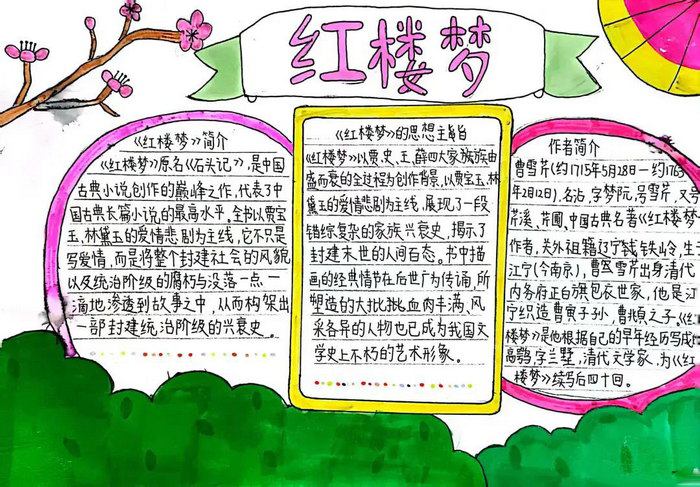 红楼梦
《红楼梦》简介
《红楼梦》原名《石头记》,是中国
古典小说创作的巅峰之作,代表了中
国古典长篇小说的最高水平。全书以贾宝
玉、林黛玉的爱情悲剧为主线,它不只是
写爱情,而是将整个封建社会的风貌
以及统治阶级的腐朽与没落一点一
滴地渗透到故事之中,从而构架出
一部封建统治阶级的兴衰史。
《红楼梦》的思想主旨
《红楼梦》以贾、史、王、薛四大家族族由
盛而衰的全过程为创作背景,以贾宝玉、林
黛玉的爱情悲剧为主线,展现了一段
错综复杂的家族兴衰史,揭示了
封建末世的人间百态。书中描
画的经典情节在后世广为传诵,所
塑造的大批批血肉丰满、风
采各异的人物也已成为我国文
学史上不朽的艺术形象。
作者简介
曹雪芹(约1715年5月28日—约1763
年2月12日),名沾,字梦阮,号雪芹,又号
芹溪、芹圃,中国古典名著《红楼梦》
作者,关外祖籍辽宁铁岭,生
江宁(今南京),曹雪芹出身清代
内务府正白旗包衣世家,他是江
宁织造曹寅子孙,曹頫之子《红
楼梦》是他根据自己的早年经历写成
高鹗,字兰墅,清代文学家,为《红
楼梦》续写后四十回。